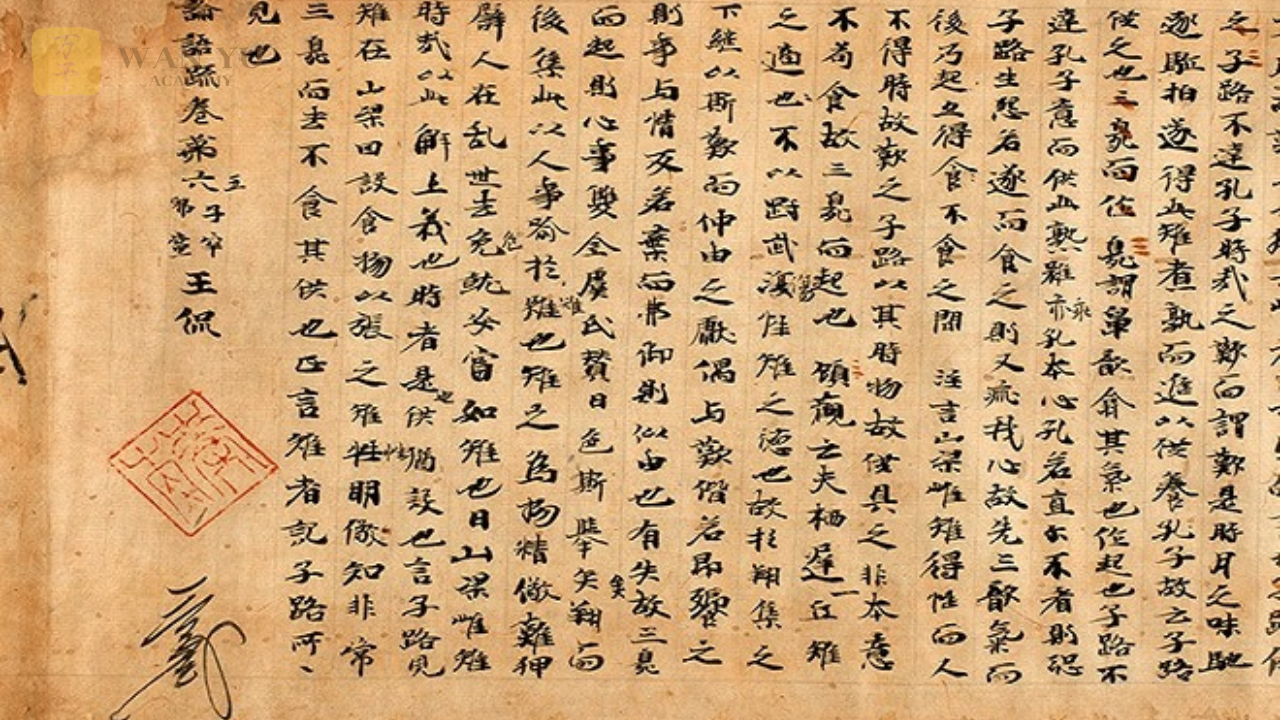 之子路不達孔子時哉之歎而謂歎是時月之味馳
逐駈拍遂得此雉煮熟而進以供養孔子故云子路
供之也三臭而作臭謂鼻歆翕其氣也作起也子路不
達孔子意而供此熟雞乖孔本心孔若直尓不者則恐
子路生怨若遂而食之則又乖我心故先三歆氣而
後乃起得食不食之間 注言山梁雌雉得性而人
不得時故歎之子路以其時物故供具之非本意
不苟食故三臭而起也 顧歡云夫栖遅一丘雉
之適也不以剛武傷性雉之德也故於翔集之
下継以斯歎而仲由之獻偶与歎偕若即饗之
則事与情反若棄而弗御則似由也有失故三臭
而起則心事雙全虞氏贊曰色斯舉矣翔而
後集此以人事喻於雉也雉之為物精儆難狎
譬人在乱世去危就安當如雉也曰山梁雌雉
時哉以此解上義也時者是也供猶設也言子路見
雉在山梁因設食物以張之雉性明儆知非常
三臭而去不食其供也正言雉者記子路所〻
見也
論語疏卷第六 王侃
WAN YU
ACADEMY